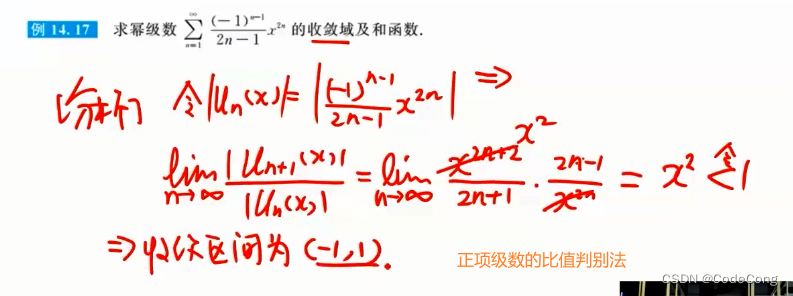 例 14.17 求幂级数 $\sum_{n=1}^{\infty} \frac{(-1)^{n-1}}{2n-1}x^{2n}$ 的收敛域及和函数.
[分析] 令|u_n(x)|=$\left|\frac{(-1)^{n-1}}{2n-1}x^{2n}\right|$ ⇒
$\lim_{n\to\infty}\frac{|u_{n+1}(x)|}{|u_n(x)|}=\lim_{n\to\infty}\frac{x^{2n+2}}{2n+1}\cdot\frac{2n-1}{x^{2n}}$ x^2 $=x^2 \overset{令}{<} 1$
⇒收敛区间为(-1,1).
正项级数的比值判别法
CSDN @CodeCong